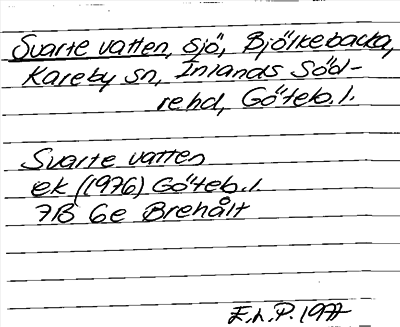 Svarte vatten, sjö, Björkebacka,
Kareby sn, Inlands Söd-
rehd, Göteb.l.
Svarte vatten
ek (1976) Göteb.l.
7B 6e Brehålt
E.L.P. 1977